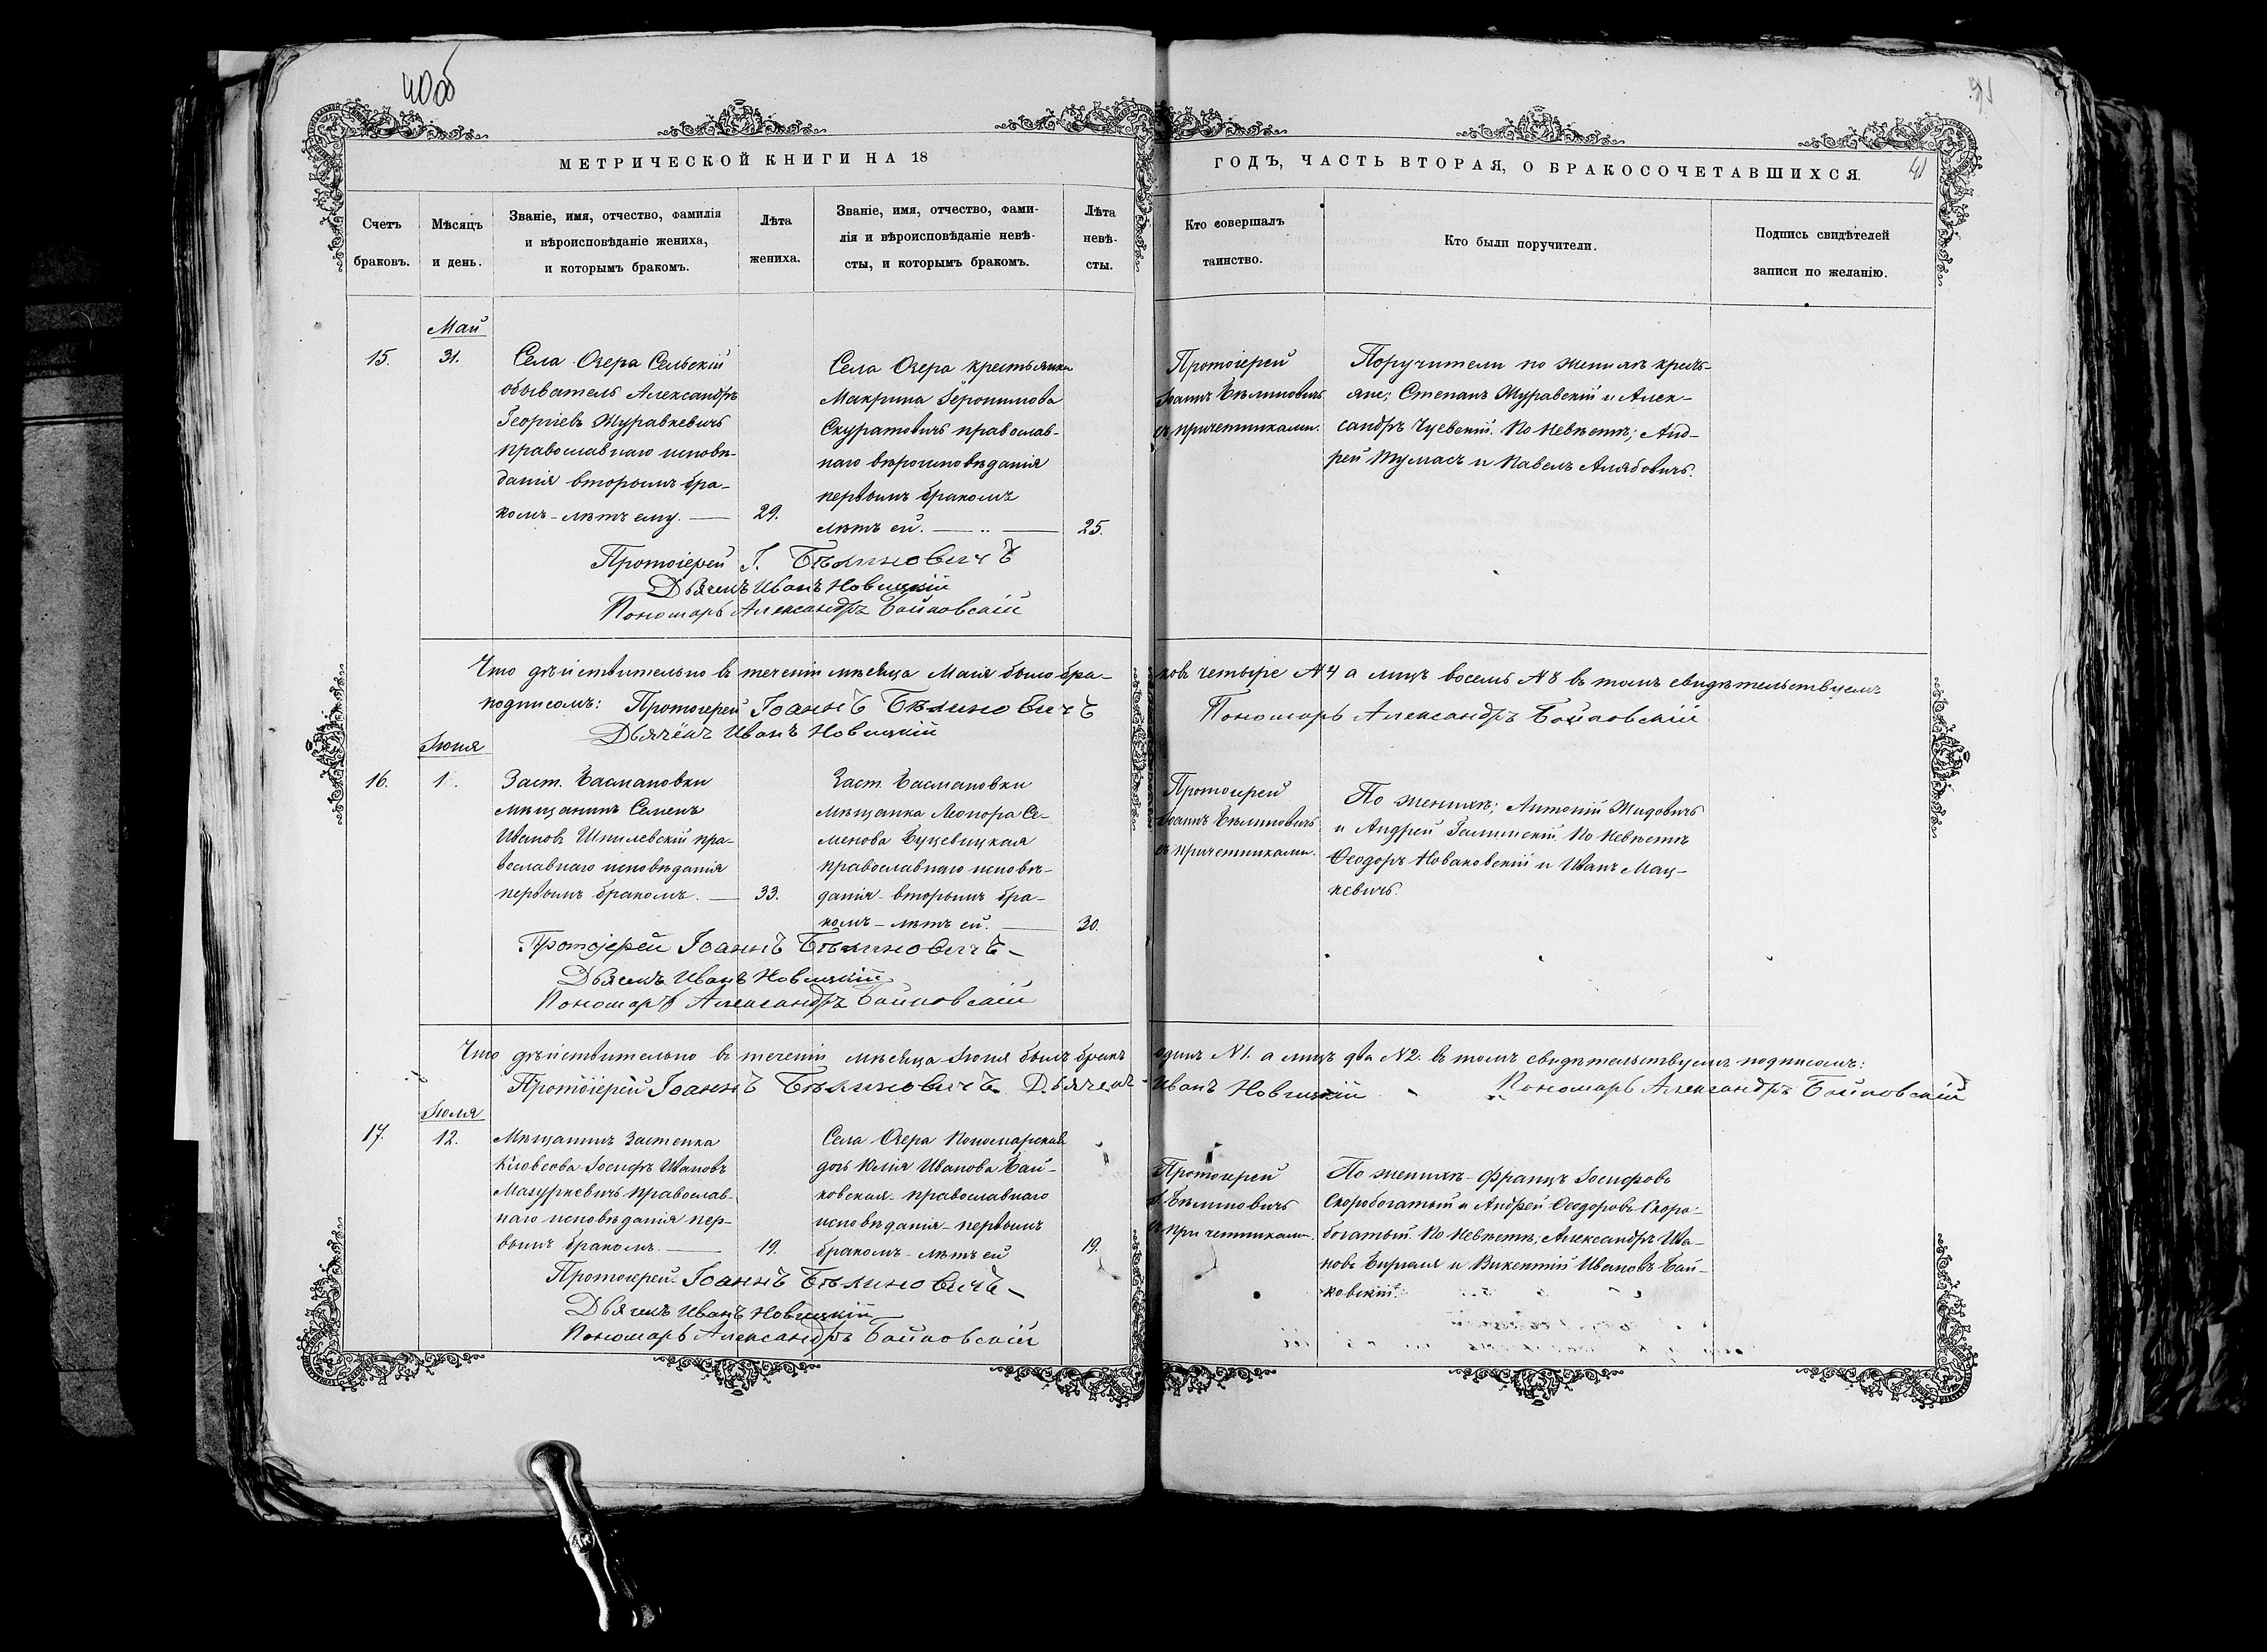 40об
41
МЕТРИЧЕСКОЙ КНИГИ НА 18
ГОДЪ, ЧАСТЬ ВТОРАЯ, О БРАКОСОЧЕТАВШИХСЯ.
41
Счетъ
браковъ.
Мѣсяцъ
и день.
Званіе, имя, отчество, фамилія
и вѣроисповѣданіе жениха,
и которымъ бракомъ.
Лѣта
жениха.
Званіе, имя, отчество, фами-
лія и вѣроисповѣданіе невѣ-
сты, и которымъ бракомъ.
Лѣта
невѣ-
сты.
Кто совершалъ
таинство.
Кто были поручители.
Подпись свидѣтелей
записи по желанію.
Май
15.
31.
Села Озера Сельскій
обыватель Александръ
Георгіевъ Журавкевичъ
православнаго исповѣ-
данія вторымъ бра-
комъ - лѣтъ ему. —
29.
Села Озера крестьянка
Макрина Іеронимова
Скуратовичъ православ-
наго вѣроисповѣданія
первымъ бракомъ
лѣтъ ей. — .. —
25.
Протоіерей
Іоаннъ Бѣлиновичъ
съ причетниками.
Поручители по женихѣ кресть-
яне; Степанъ Журавскій и Алек-
сандръ Чуевскій. По невѣстѣ; Анд-
рей Тумасъ и Павелъ Алябовичъ.
Протоіерей І. Бѣлиновичъ
Дьячекъ Иванъ Новицкій
Пономарь Александръ Байковскій
Что дѣйствительно въ теченіи мѣсяца Маія было бра-
ковъ четыре №4 а лицъ восемь №8 въ томъ свидѣтельствуемъ
подписомъ: Протоіерей Іоаннъ Бѣлиновичъ
Пономарь Александръ Байковскій
Дьячёкъ Иванъ Новицкій
Іюня
16.
1.
Заст. Басмановки
мѣщанинъ Семенъ
Ивановъ Шпилевскій пра-
вославнаго исповѣданія
первымъ бракомъ. —
33.
Заст. Басмановки
мѣщанка Леонора Се-
менова Буцевицкая
православнаго исповѣ-
данія - вторымъ бра-
комъ - лѣтъ ей. —
30.
Протоіерей
Іоаннъ Бѣлиновичъ
съ причетниками.
По женихѣ; Антоній Жидовичъ
и Андрей Залинскій. По невѣстѣ
Ѳеодоръ Новаковскій и Иванъ Мац-
кевичъ.
Протоіерей Іоаннъ Бѣлиновичъ -
Дьячекъ Иванъ Новицкій
Пономарь Александръ Байковскій
Что дѣйствительно въ теченіи мѣсяца Іюня былъ бракъ
одинъ №1. а лицъ два №2. въ томъ свидѣтельствуемъ подписомъ:
Протоіерей Іоаннъ Бѣлиновичъ Дьячекъ
Иванъ Новицкій - Пономарь Александръ Байковскій
Іюля
17.
12.
Мѣщанинъ Застенка
Іосифъ Ивановъ
Мазуркевичъ православ-
наго исповѣданія пер-
вымъ бракомъ. —
19.
Села Озера Пономарская
дочь Юлія Иванова Бай-
ковская - православнаго
исповѣданія - первымъ
бракомъ - лѣтъ ей
19.
Протоіерей
І. Бѣлиновичъ
съ причетниками.
По женихѣ - Францъ Іосифовъ
Скоробогатый и Андрей Ѳеодоровъ Скоро-
богатый. По невѣстѣ; Александръ Ива-
новъ и Викентій Ивановъ Бай-
ковскій.
Протоіерей Іоаннъ Бѣлиновичъ -
Дьячекъ Иванъ Новицкій
Пономарь Александръ Байковскій